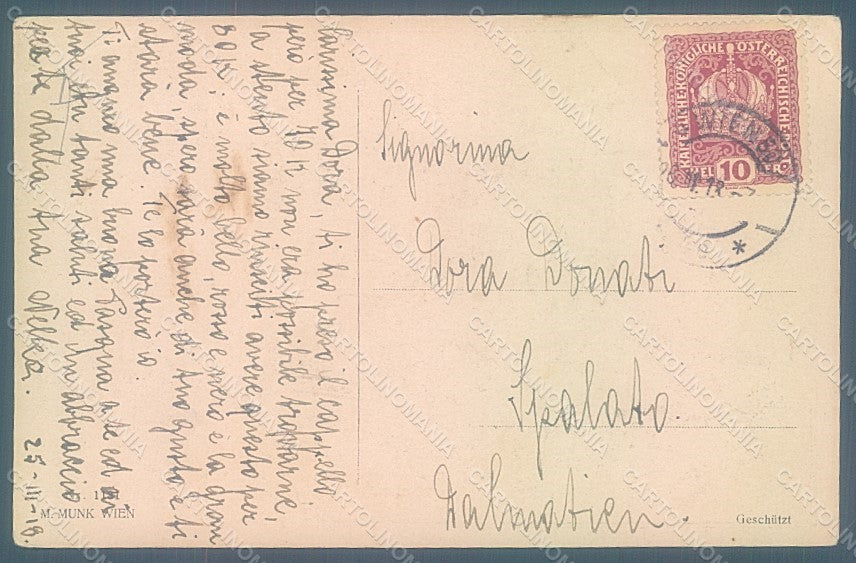 Carissima Dora, ti ho preso il cappello
però per 70 K non era possibile trovarne,
a stento siamo riusciti avere questo per
80 K; è molto bello, rosso e nero è la gran
moda, spero sarà anche di tuo gusto e ti
starà bene. Te lo porterò io.
Ti auguro una buona Pasqua a te ed ai
tuoi con tanti saluti ed un abbraccio
per te dalla tua Nelka. 25-III-18.
Signorina
Dora Donati
Spalato.
Dalmatien.
KAISERLICHE KÖNIGLICHE ÖSTERREICHISCHE
10
WIEN
18
M. MUNK WIEN
Geschützt
CARTOLINOMANIA